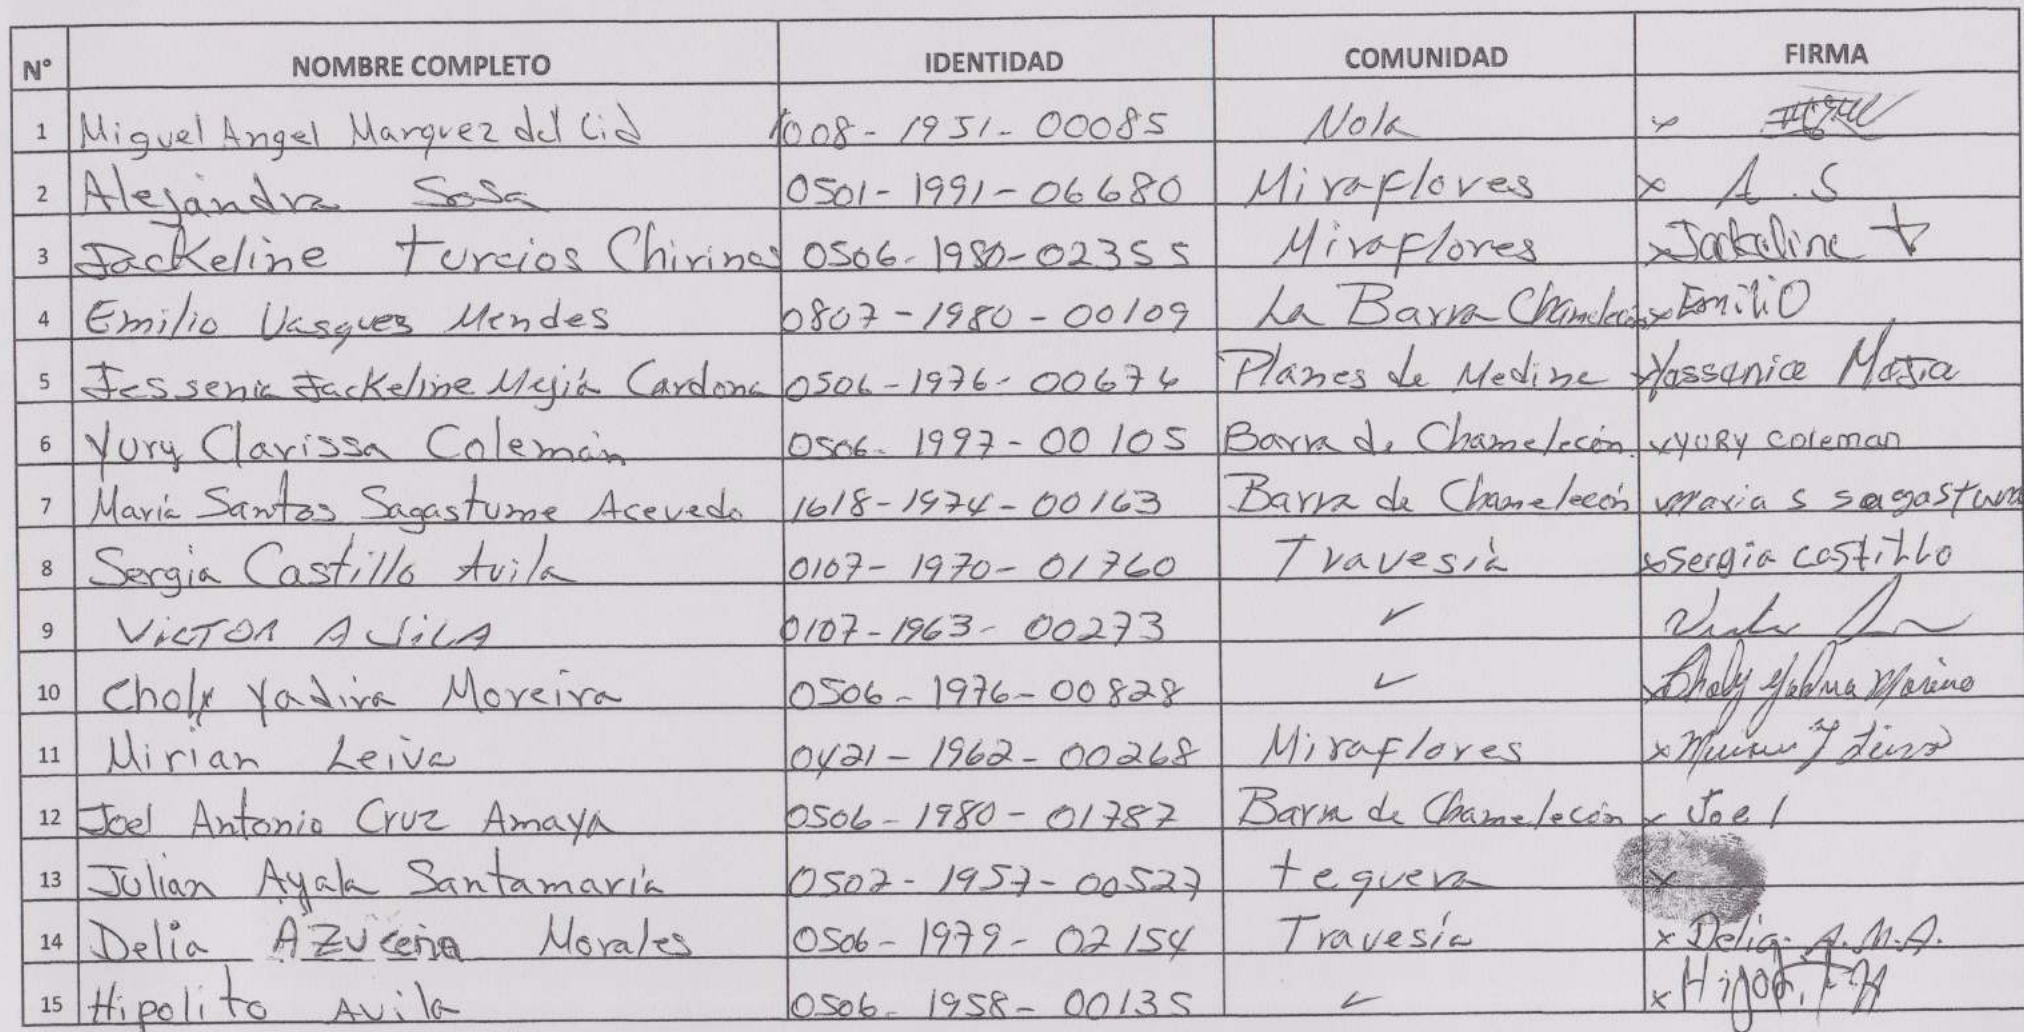 N° NOMBRE COMPLETO IDENTIDAD COMUNIDAD FIRMA
1 Miguel Angel Marquez del Cid 1008-1951-00085 Nola x
2 Alejandra Sosa 0501-1991-06680 Miraflores x A.S
3 Jackeline turcios Chirinos 0506-1980-02355 Miraflores x Jackeline t
4 Emilio Vasquez Mendes 0807-1980-00109 La Barra Chamelecón x EmiliO
5 Jessenia Jackeline Mejía Cardona 0506-1976-00674 Planes de Medina x Yassenia Mejia
6 Yury Clarissa Colemán 0506-1997-00105 Barra de Chamelecón x yuRy coleman
7 María Santos Sagastume Acevedo 1618-1974-00163 Barra de Chamelecón maria s sagastum
8 Sergia Castillo Avila 0107-1970-01760 Travesía x sergia castillo
9 VICTOR AVILA 0107-1963-00273 ✓
10 Choly Yadira Moreira 0506-1976-00828 ✓ x Choly Yadira
11 Mirian Leiva 0421-1962-00268 Miraflores x
12 Joel Antonio Cruz Amaya 0506-1980-01787 Barra de Chamelecón x Joel
13 Julian Ayala Santamaría 0502-1957-00527 teguera x
14 Delia AZucena Morales 0506-1979-02154 Travesía x Delia. A.M.A.
15 Hipolito Avila 0506-1958-00135 ✓ x